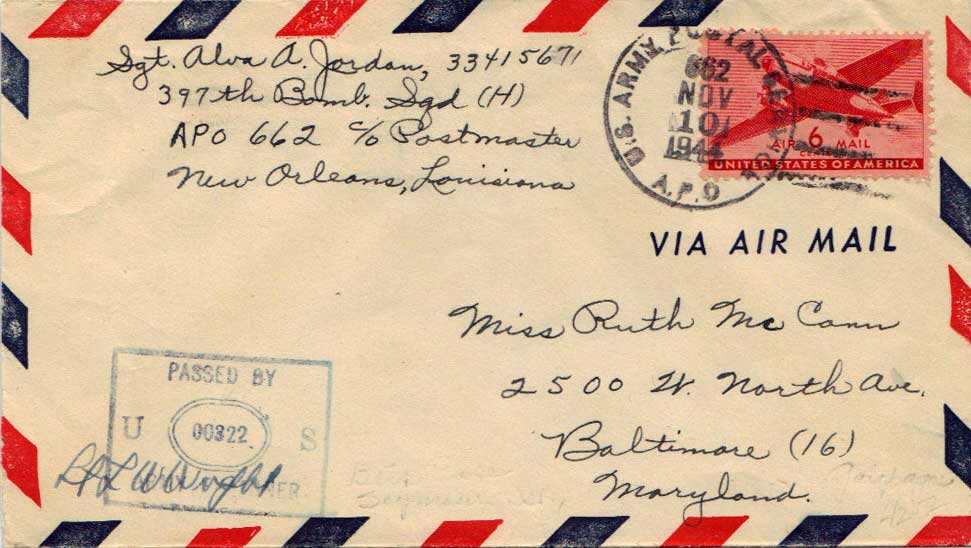 Sgt. Alva A. Jordan, 33415671
397th Bomb. Sqd (H)
APO 662 c/o Postmaster
New Orleans, Louisiana
U.S. ARMY POSTAL SERVICE
662
NOV
10
1944
A.P.O
AIR 6 MAIL
CENTS
UNITED STATES OF AMERICA
VIA AIR MAIL
Miss Ruth McCann
2500 W. North Ave.
Baltimore (16)
Maryland.
PASSED BY
U 00322 S